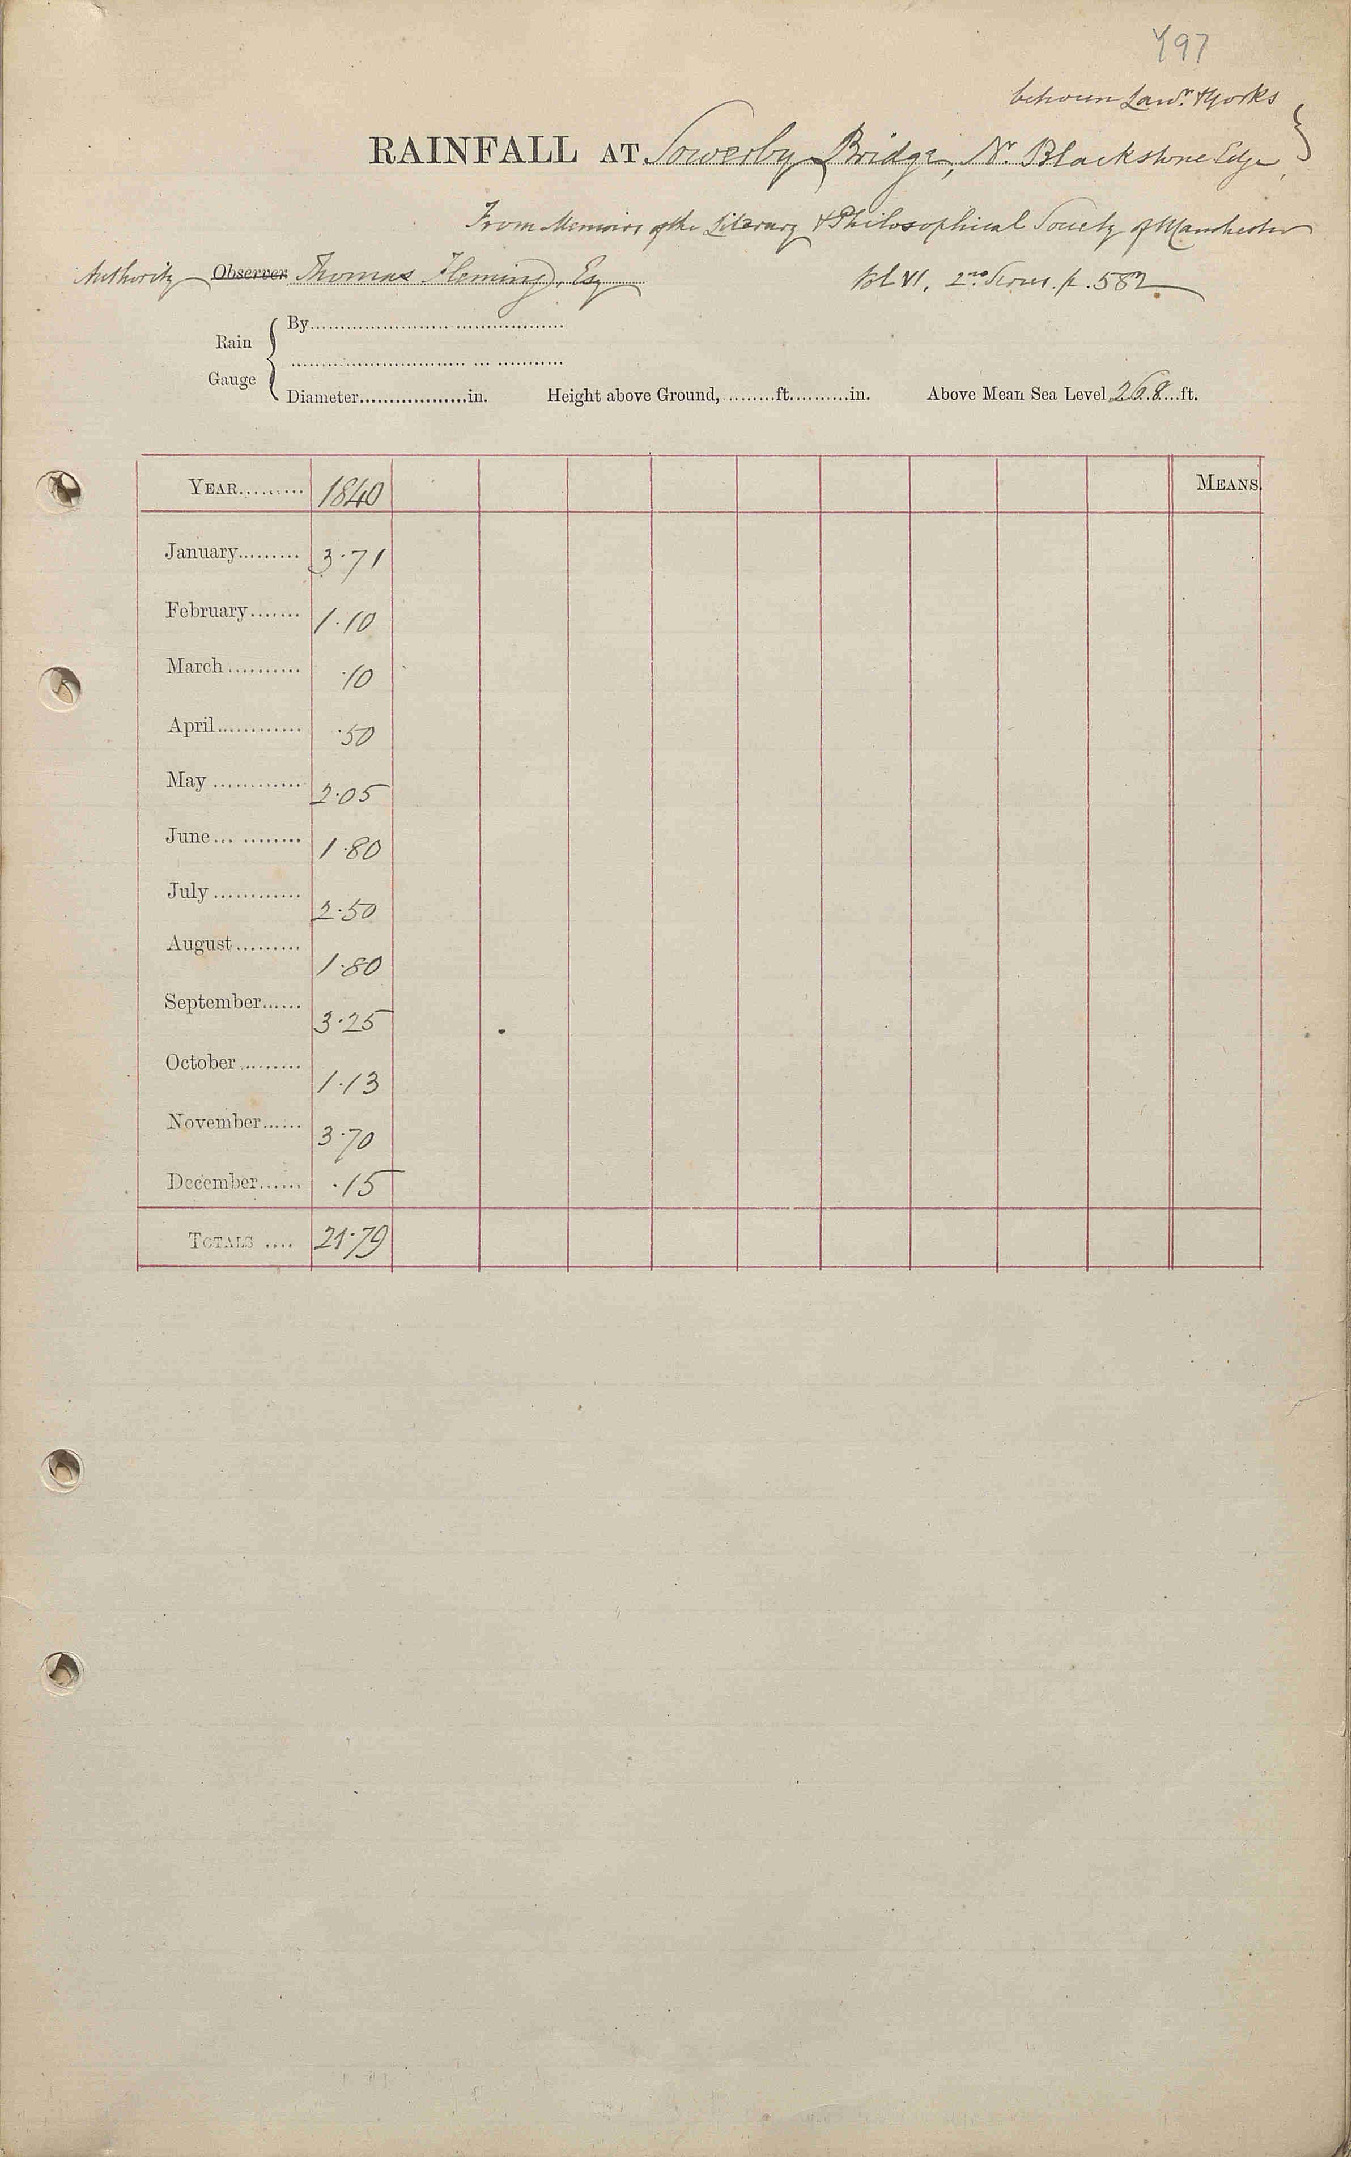 Y97
between Lanc. & Yorks
RAINFALL AT Sowerby Bridge, Nr. Blackstone Edge
From Memoirs of the Literary & Philosophical Society of Manchester
Authority Observer Thomas Fleming, Esq Vol VI, 2nd Series. p. 582
By
Rain
Gauge
Diameter..................in. Height above Ground, .........ft..........in. Above Mean Sea Level 268 ft.
YEAR......... 1840 MEANS.
January......... 3.71
February....... 1.10
March.......... .10
April............ .50
May............ 2.05
June........... 1.80
July............ 2.50
August......... 1.80
September...... 3.25
October......... 1.13
November...... 3.70
December...... .15
TOTALS .... 21.79